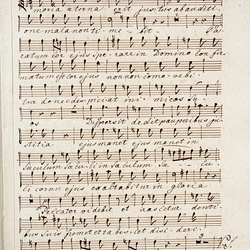 moria æterna erit justus ab auditi
one mala non ti me _ bit. Pa
ratum cor ejus sperare in Domino con fir
matum est cor ejus non non com o ve bi
tur donec despiciat inimicos su
os Dispersit dedit pauperibus ju
stitia ejus manet ejus manet in
saeculum saeculi in saeculum sae _ cu
li cornu ejus exaltabitur in gloria
Peccator videbit et irascetur denti
bus suis fremet et tabescet desideri